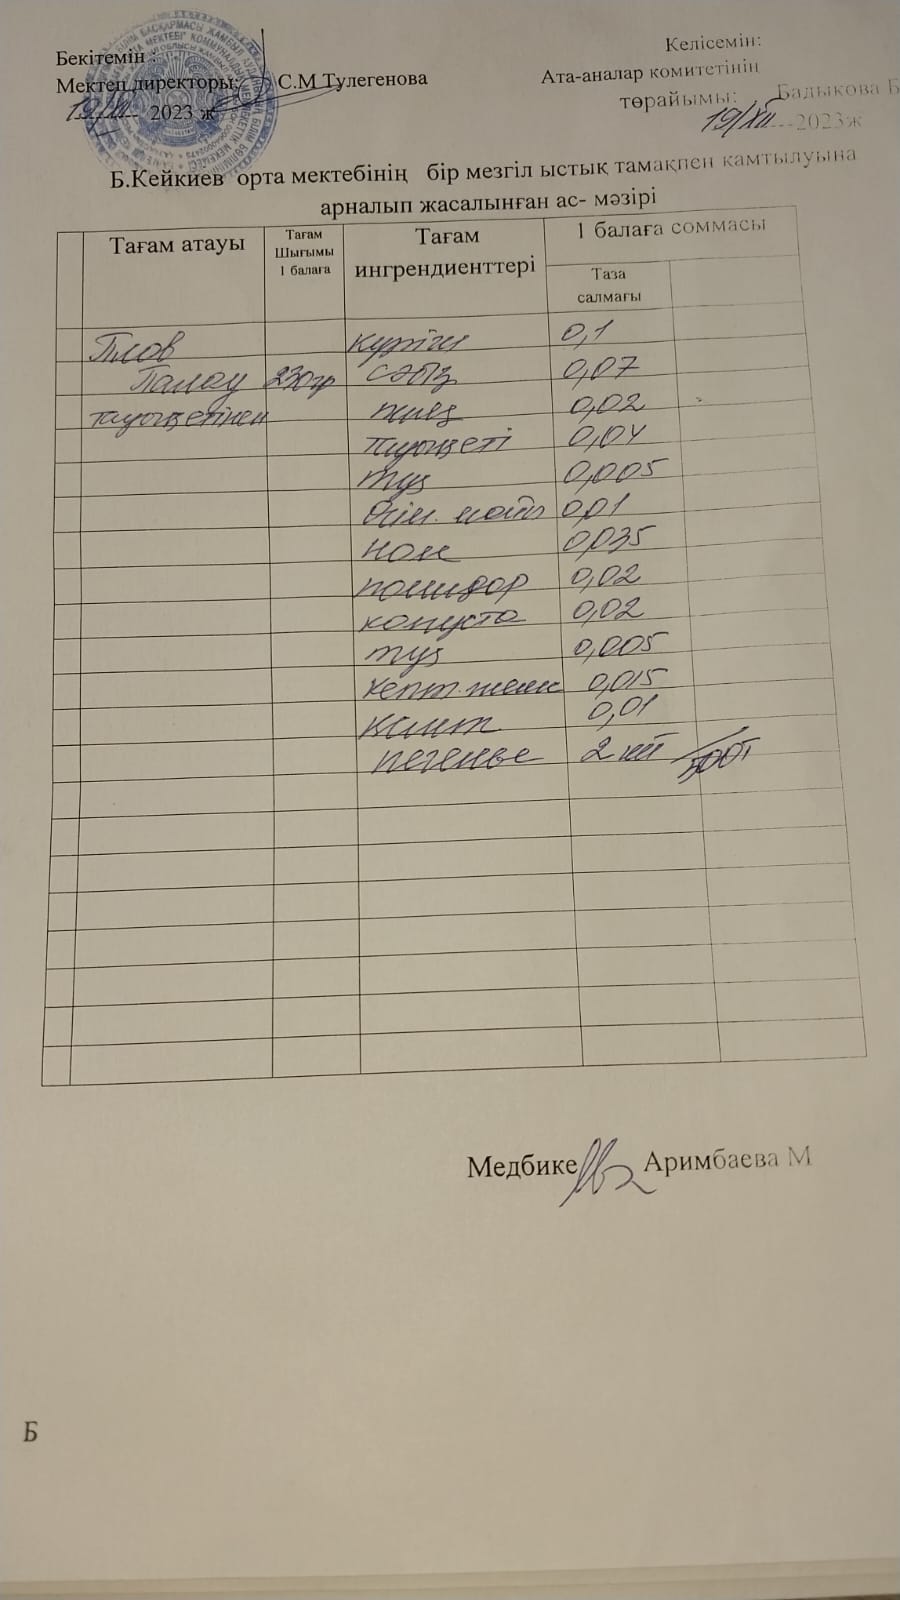 Бекітемін :
Келісемін:
Мектеп директоры: С.М Тулегенова
Ата-аналар комитетінің
19/XII 2023 ж
төрайымы: Бадыкова Б
19/XII 2023ж
Б.Кейкиев орта мектебінің бір мезгіл ыстық тамақпен қамтылуына
арналып жасалынған ас- мәзірі
Тағам атауы Тағам Шығымы 1 балаға Тағам ингрендиенттері 1 балаға соммасы
Таза салмағы
Плов күріш 0,1
Палау 230гр сәбіз 0,07
тауықетінен пияз 0,02
тауықеті 0,04
тұз 0,005
өсім. майы 0,01
нан 0,035
помидор 0,02
капуста 0,02
тұз 0,005
кепт. жеміс 0,015
қант 0,01
печенье 2 шт 500т
Медбике Аримбаева М
Б